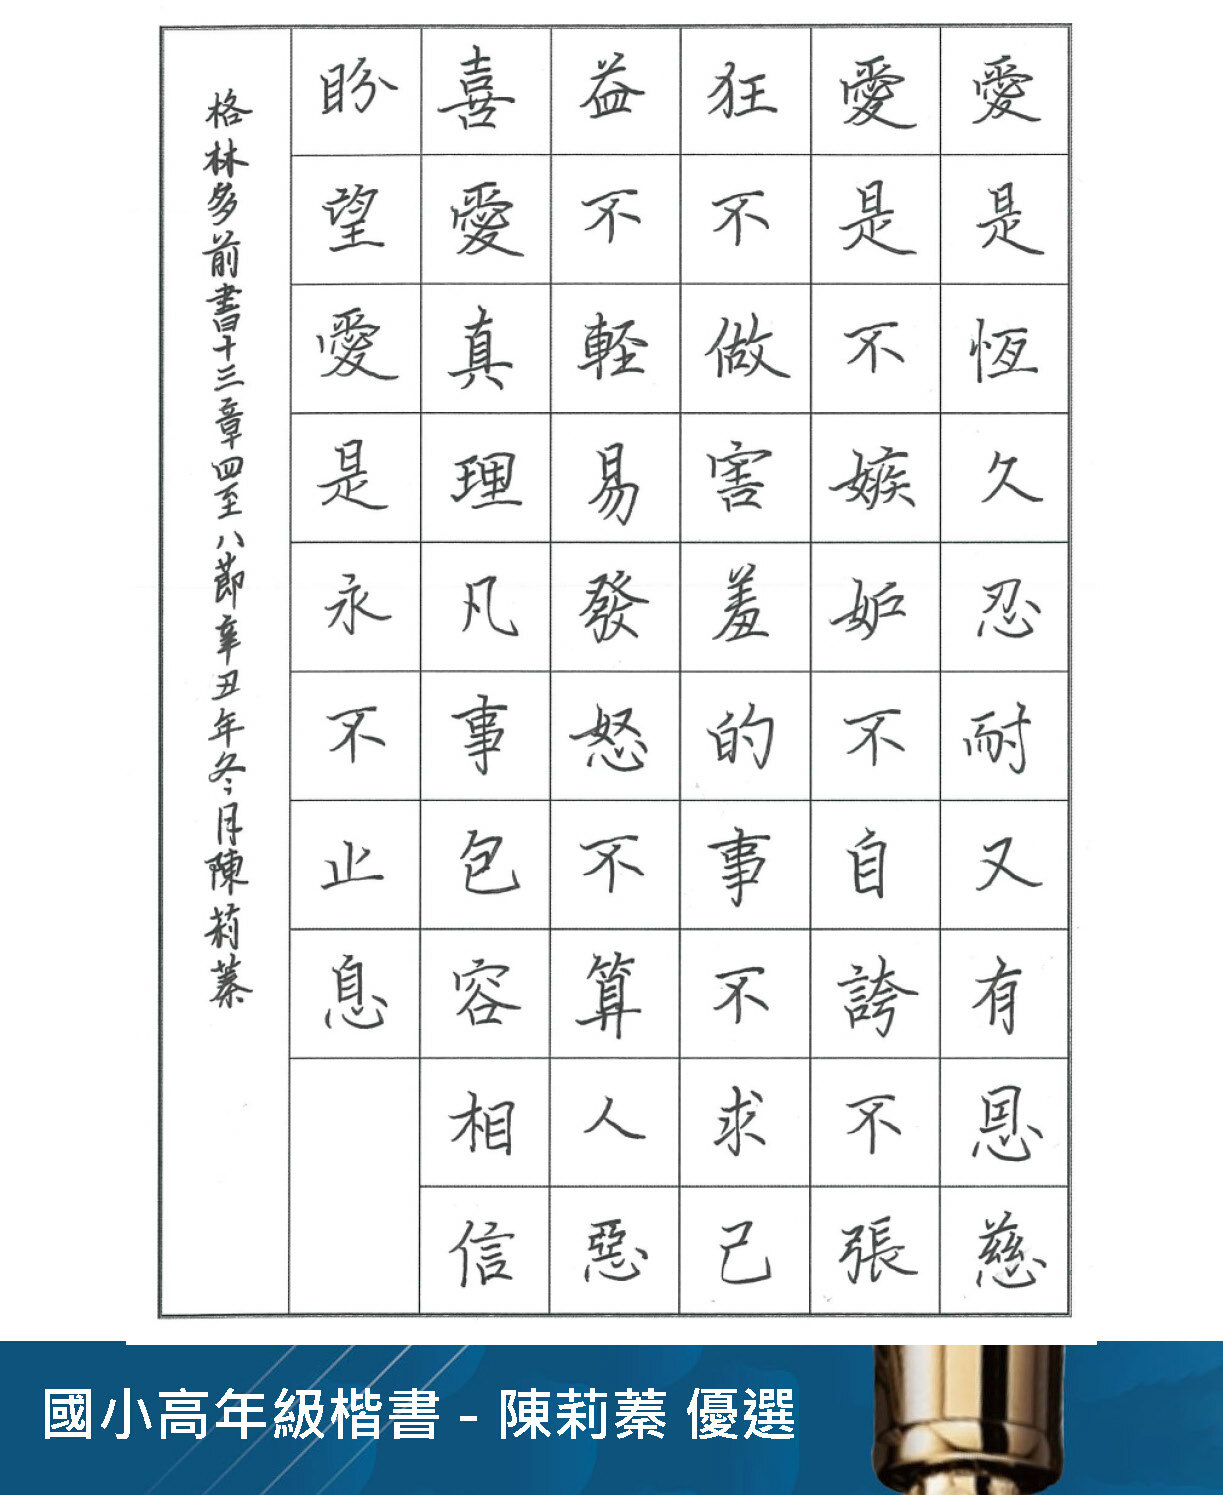 愛是恆久忍耐又有恩慈
愛是不嫉妒不自誇不張
狂不做害羞的事不求己
益不輕易發怒不算人惡
喜愛真理凡事包容相信
盼望愛是永不止息
格林多前書十三章四至八節辛丑年冬月陳莉蓁
國小高年級楷書 - 陳莉蓁 優選